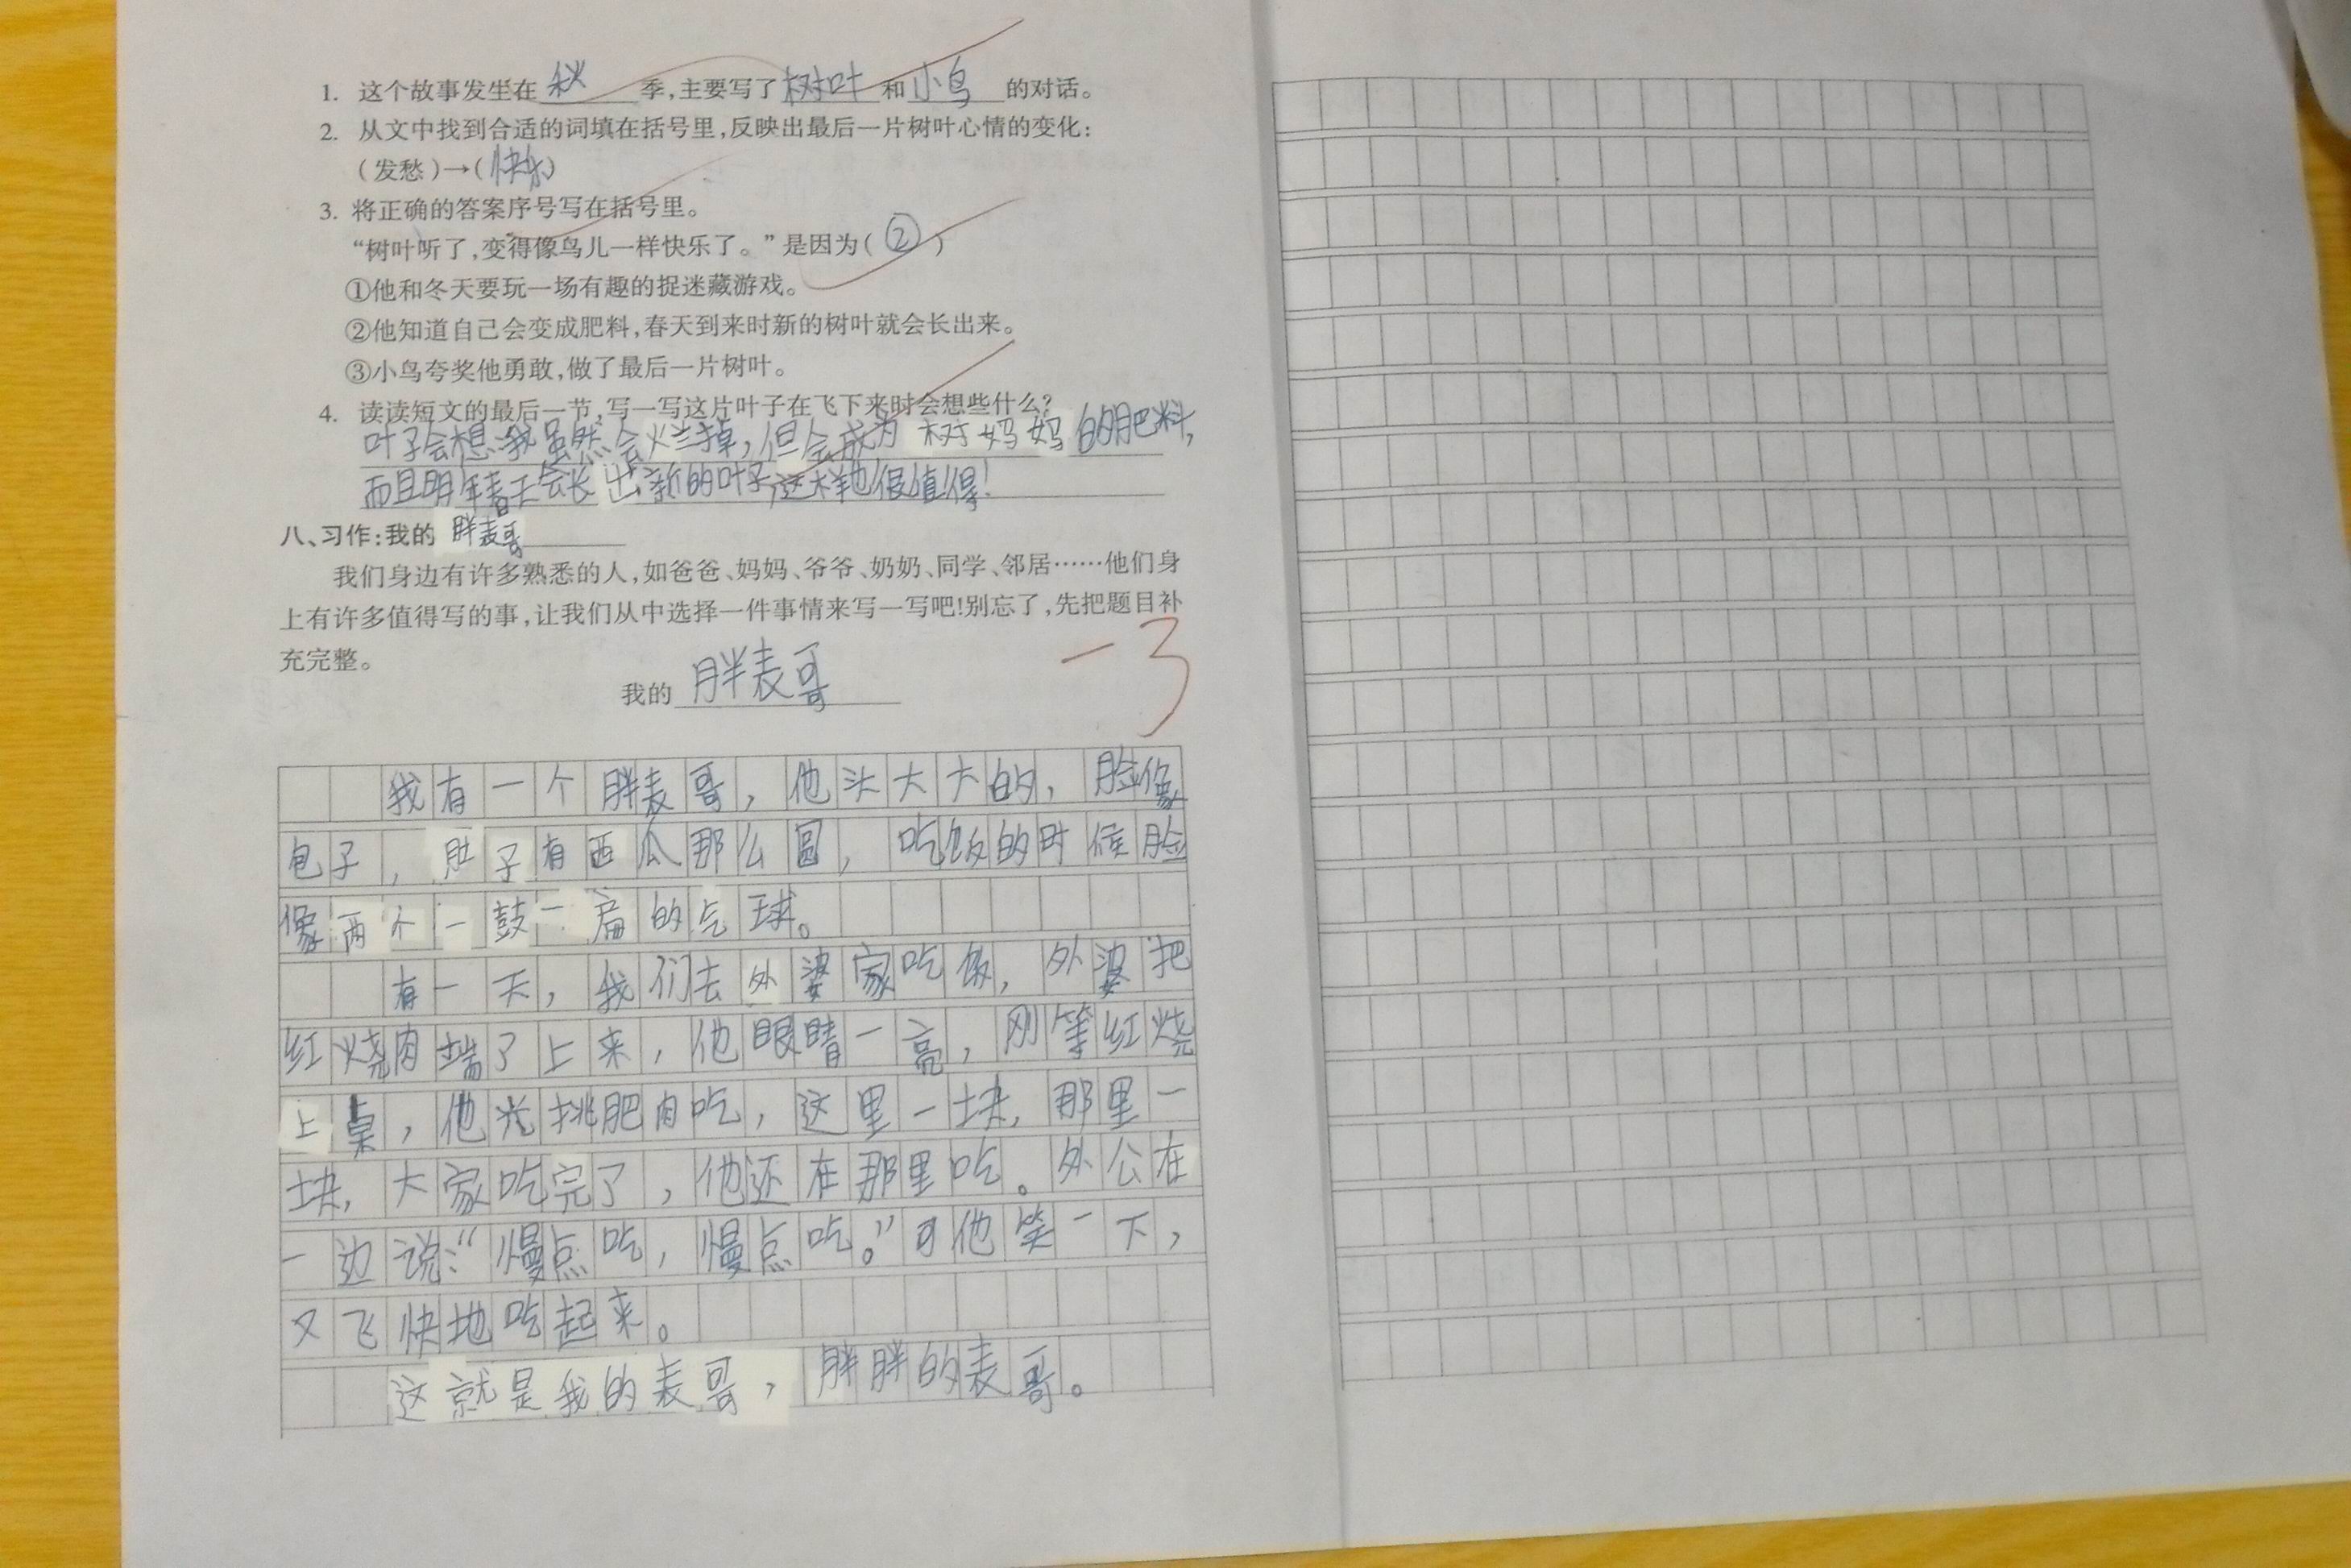 1. 这个故事发生在秋季,主要写了树叶和小鸟的对话。
2. 从文中找到合适的词填在括号里,反映出最后一片树叶心情的变化:
(发愁)→(快乐)
3. 将正确的答案序号写在括号里。
“树叶听了,变得像鸟儿一样快乐了。”是因为(②)
①他和冬天要玩一场有趣的捉迷藏游戏。
②他知道自己会变成肥料,春天到来时新的树叶就会长出来。
③小鸟夸奖他勇敢,做了最后一片树叶。
4. 读读短文的最后一节,写一写这片叶子在飞下来时会想些什么?
叶子会想:我虽然会烂掉,但会成为树妈妈的肥料,
而且明年春天会长出新的叶子,这样也很值得!
八、习作:我的胖表哥
我们身边有许多熟悉的人,如爸爸、妈妈、爷爷、奶奶、同学、邻居……他们身
上有许多值得写的事,让我们从中选择一件事情来写一写吧!别忘了,先把题目补
充完整。
-3
我的胖表哥
我有一个胖表哥,他头大大的,脸像
包子,肚子有西瓜那么圆,吃饭的时候脸
像两个一鼓一扁的气球。
有一天,我们去外婆家吃饭,外婆把
红烧肉端了上来,他眼睛一亮,刚等红烧
上桌,他光挑肥肉吃,这里一块,那里一
块,大家吃完了,他还在那里吃。外公在
一边说:“慢点吃,慢点吃。”可他笑一下,
又飞快地吃起来。
这就是我的表哥,胖胖的表哥。